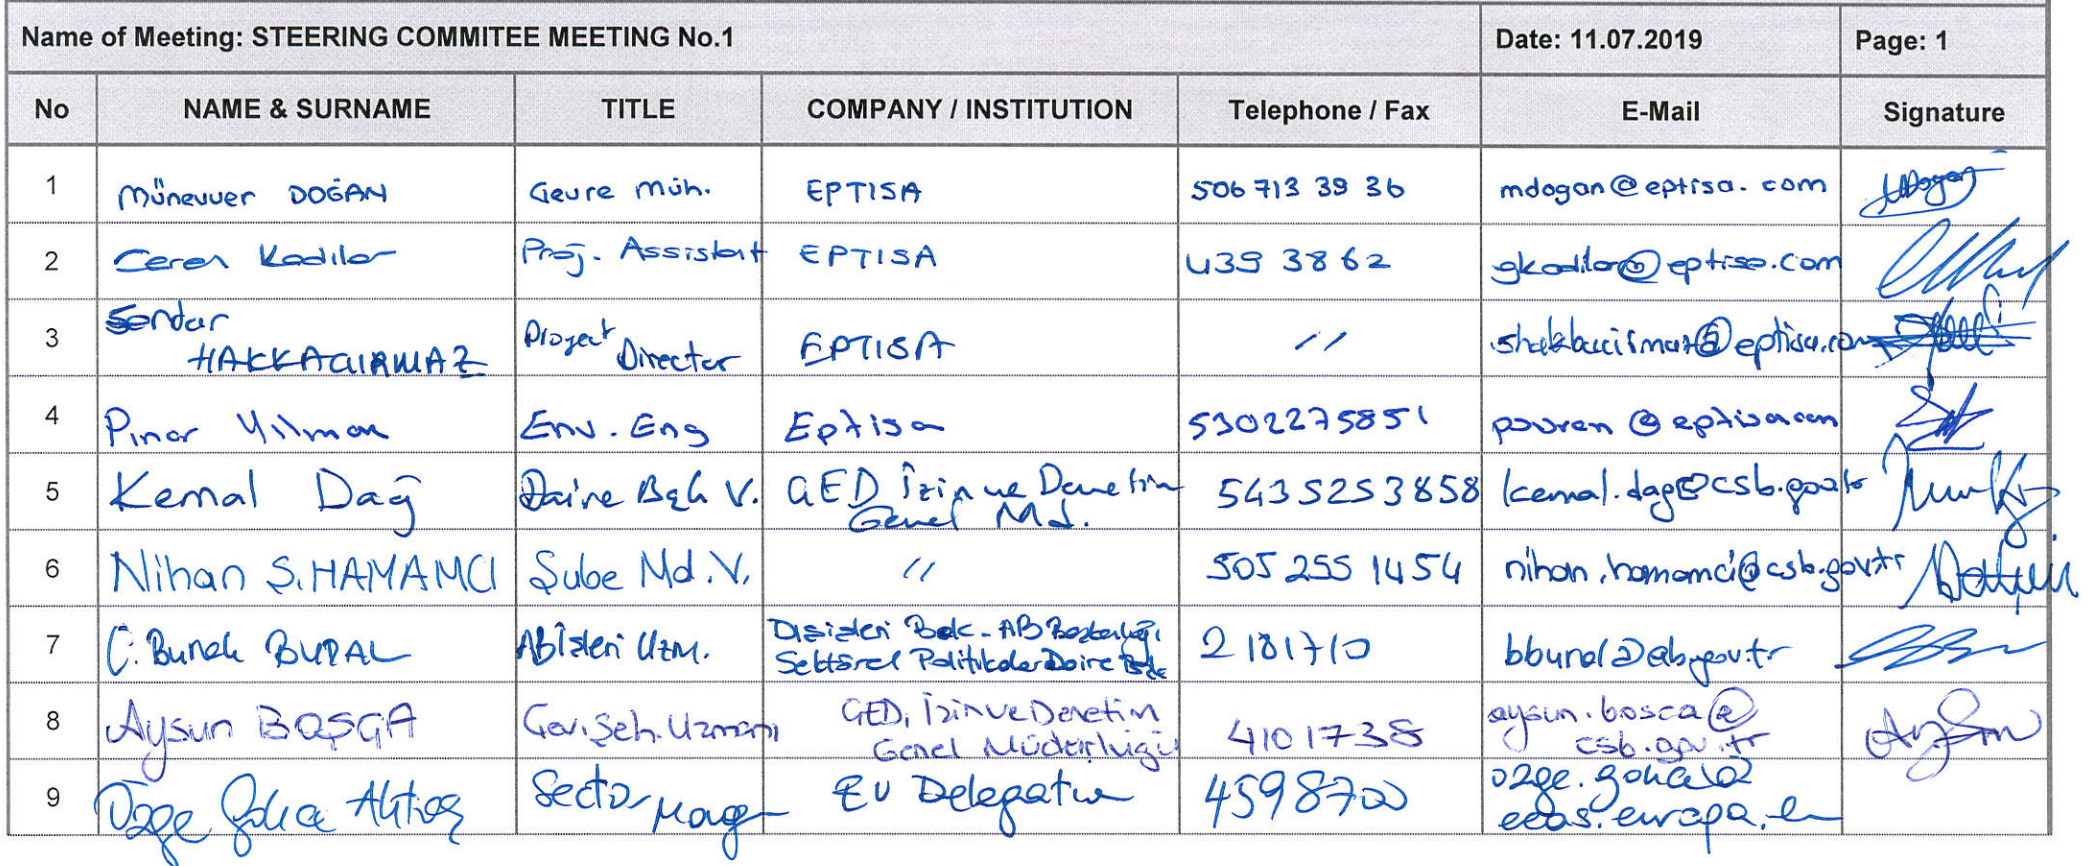 Name of Meeting: STEERING COMMITEE MEETING No.1 Date: 11.07.2019 Page: 1
No NAME & SURNAME TITLE COMPANY / INSTITUTION Telephone / Fax E-Mail Signature
1 Münevver DOĞAN Çevre Müh. EPTISA 506 713 39 36 mdogan@eptisa.com
2 Ceren Kadılar Proj. Assistant EPTISA 439 3862 gkadilar@eptisa.com
3 Serdar HAKKAÇIRMAZ Project Director EPTISA // @eptisa.com
4 Pınar Yılmaz Env. Eng Eptisa 5302275851 @eptisa.com
5 Kemal Dağ Daire Bşk V. ÇED İzin ve Denetim Genel Md. 5435253858 kemal.dag@csb.gov.tr
6 Nihan Ş.HAMAMCI Şube Md.V. // 505 255 1454 nihan.hamamci@csb.gov.tr
7 Ç. Burak BURAL AB İşleri Uzm. Dışişleri Bak. - AB Başkanlığı
Sektörel Politikalar Daire Bşk 2181710 bbural@ab.gov.tr
8 Aysun BOŞÇA Çev.Şeh.Uzmanı ÇED, İzin ve Denetim
Genel Müdürlüğü 4101738 aysun.bosca@
csb.gov.tr
9 Özge Gökçe Sector EU Delegation 4598700 ozge.gokce@
eeas.europa.eu